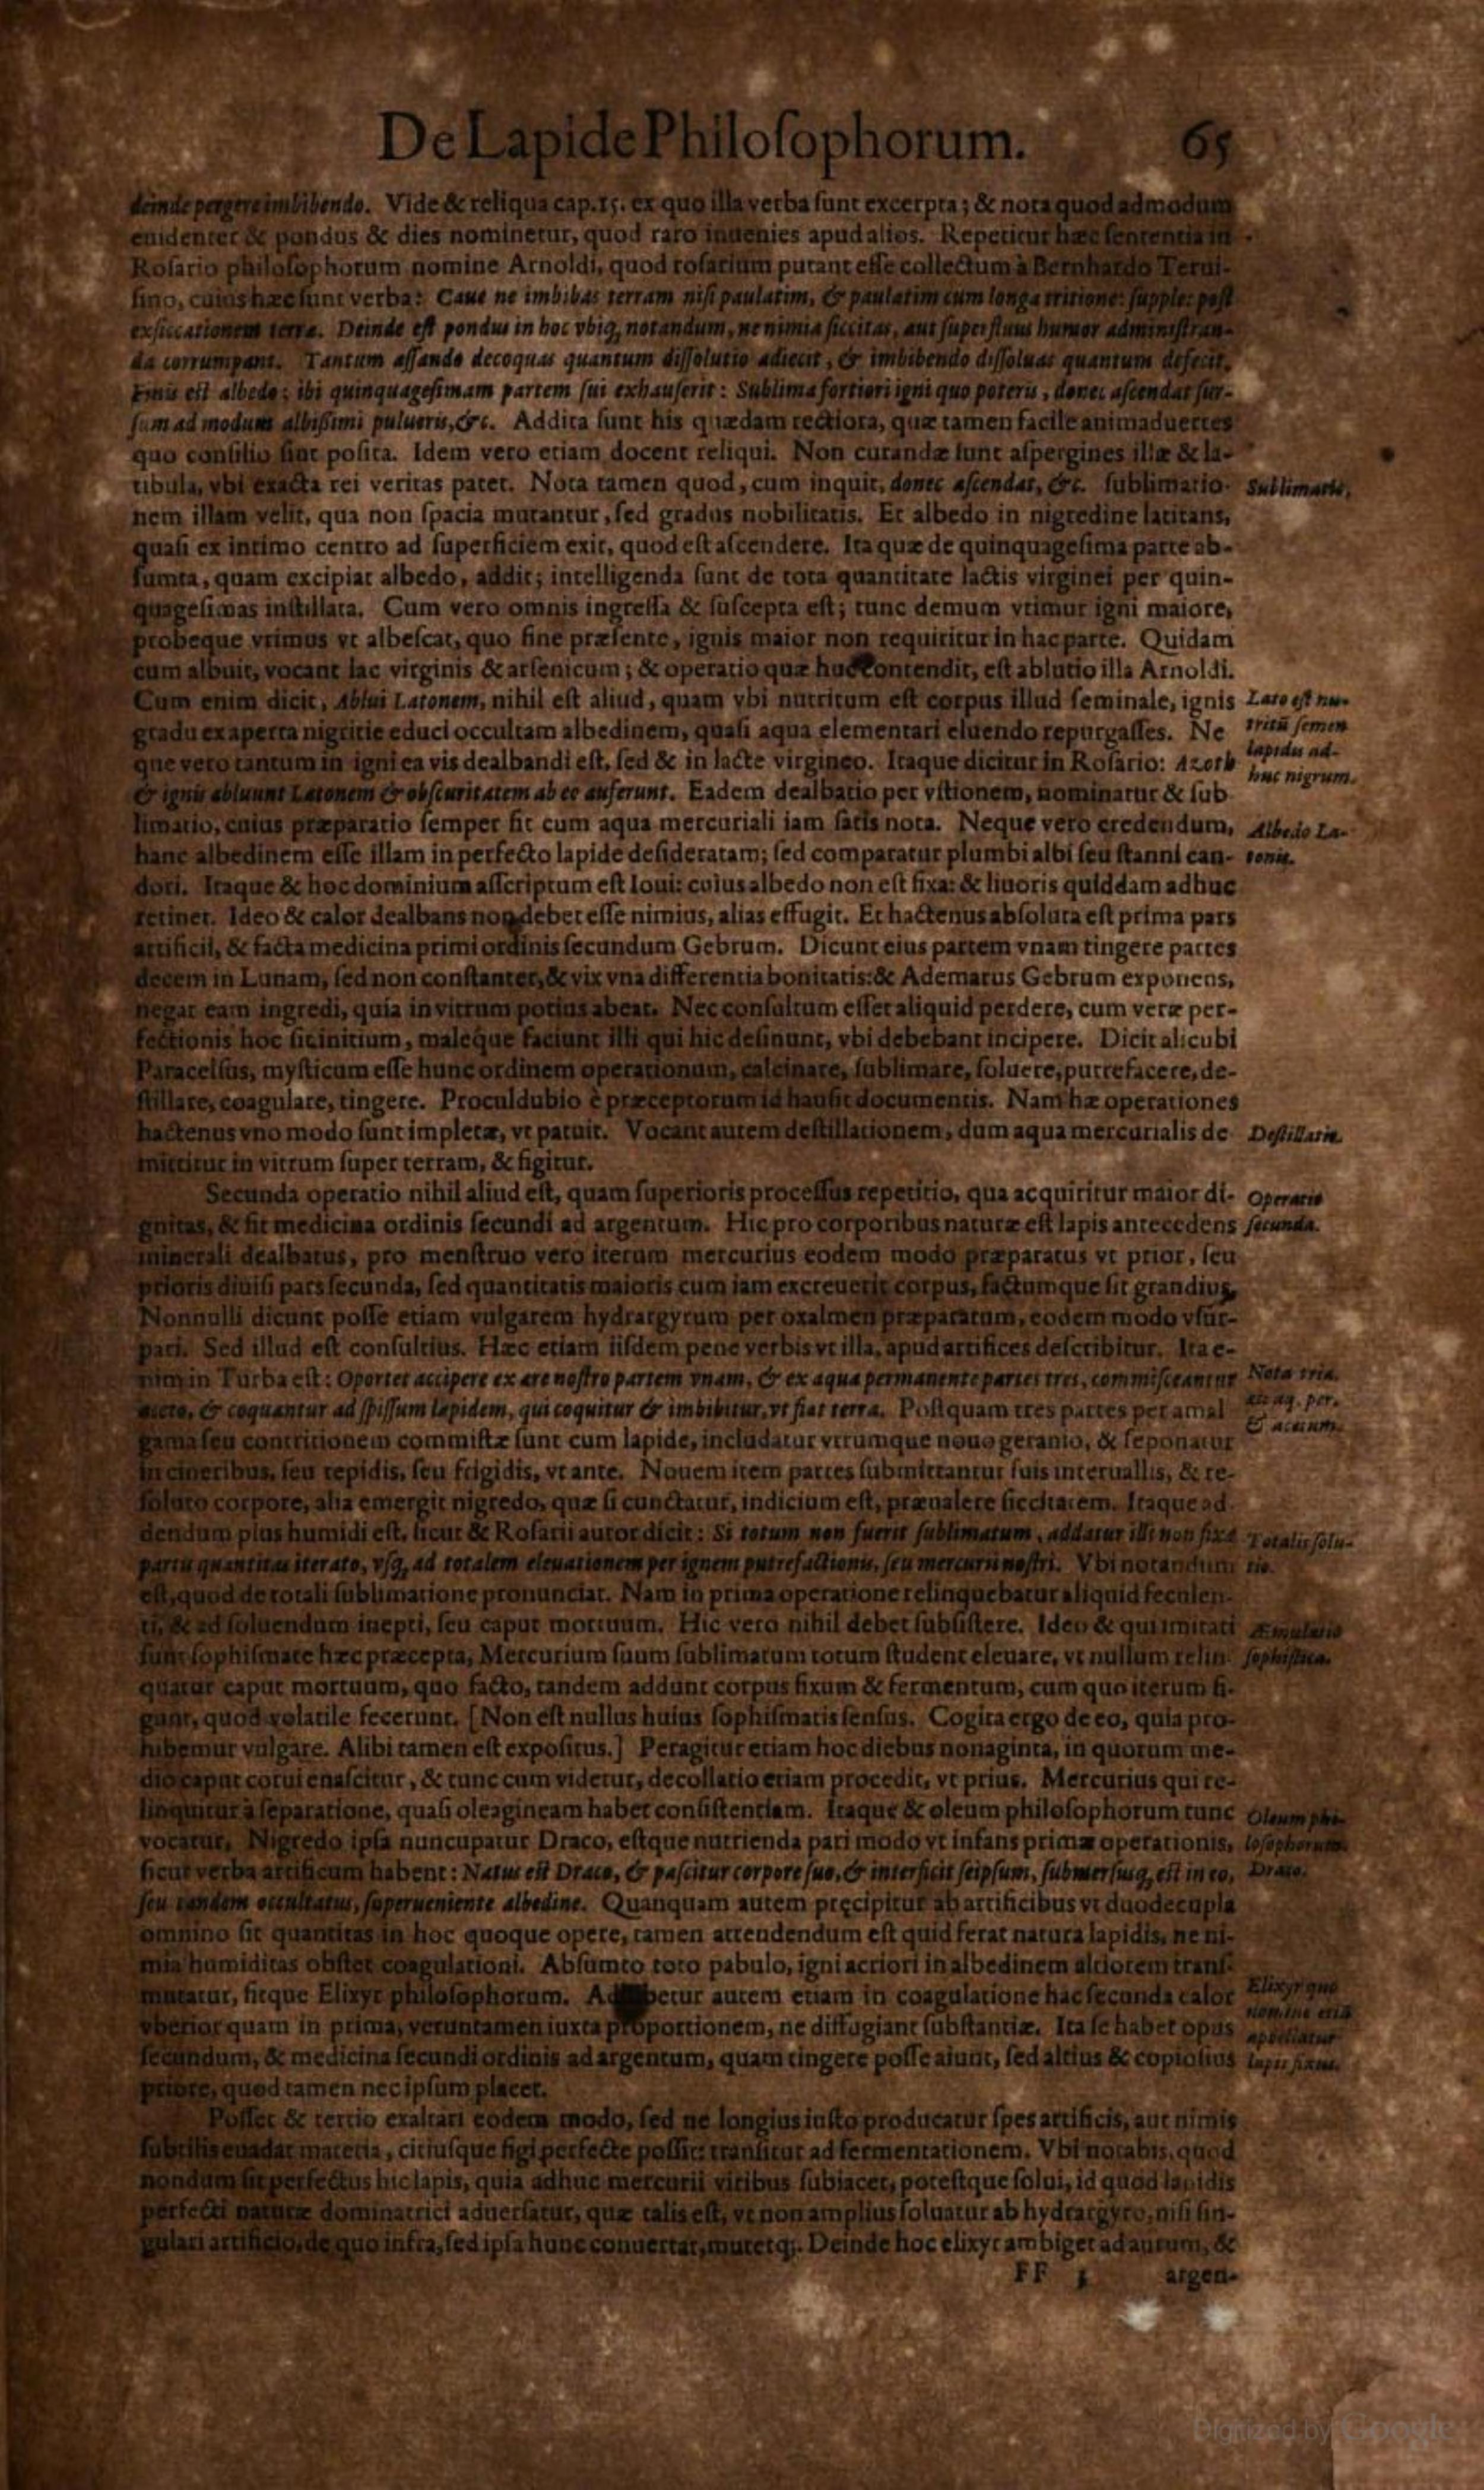 De Lapide Philoſophorum. 65
deinde pergere imbibendo. Vide & reliqua cap.15. ex quo illa verba ſunt excerpta; & nota quod admodum
euidenter & pondus & dies nominetur, quod raro inuenies apud alios. Repetitur hæc ſententia in
Roſario philoſophorum nomine Arnoldi, quod roſarium putant eſſe collectum à Bernhardo Terui-
ſino, cuius hæc ſunt verba: Caue ne imbibas terram niſi paulatim, & paulatim cum longa tritione: ſupple: poſt
exſiccationem terræ. Deinde eſt pondus in hoc vbiq, notandum, ne nimia ſiccitas, aut ſuperfluus humor adminiſtran-
da corrumpant. Tantum aſſando decoquas quantum diſſolutio adiecit, & imbibendo diſſoluas quantum defecit.
Finis eſt albedo; ibi quinquageſimam partem ſui exhauſerit: Sublima fortiori igni quo poteris, donec aſcendat ſur-
ſum ad modum albißimi pulueris, &c. Addita ſunt his quædam rectiora, quæ tamen facile animaduertes
quo conſilio ſint poſita. Idem vero etiam docent reliqui. Non curandæ ſunt aſpergines illæ & la-
tibula, vbi exacta rei veritas patet. Nota tamen quod, cum inquit, donec aſcendat, &c. ſublimatio-
Sublimatio.
nem illam velit, qua non ſpacia mutantur, ſed gradus nobilitatis. Et albedo in nigredine latitans,
quaſi ex intimo centro ad ſuperficiem exit, quod eſt aſcendere. Ita quæ de quinquageſima parte ab-
ſumta, quam excipiat albedo, addit; intelligenda ſunt de tota quantitate lactis virginei per quin-
quageſimas inſtillata. Cum vero omnis ingreſſa & ſuſcepta eſt; tunc demum vtimur igni maiore,
probeque vrimus vt albeſcat, quo fine præſente, ignis maior non requiritur in hac parte. Quidam
cum albuit, vocant lac virginis & arſenicum; & operatio quæ huc contendit, eſt ablutio illa Arnoldi.
Cum enim dicit, Ablui Latonem, nihil eſt aliud, quam vbi nutritum eſt corpus illud ſeminale, ignis
Lato eſt nu-
gradu ex aperta nigritie educi occultam albedinem, quaſi aqua elementari eluendo repurgaſſes. Ne
tritū ſemen
lapidis ad-
que vero tantum in igni ea vis dealbandi eſt, ſed & in lacte virgineo. Itaque dicitur in Roſario: Azoth
huc nigrum.
& ignis abluunt Latonem & obſcuritatem ab eo auferunt. Eadem dealbatio per vſtionem, nominatur & ſub
limatio, cuius præparatio ſemper fit cum aqua mercuriali iam ſatis nota. Neque vero credendum,
Albedo La-
hanc albedinem eſſe illam in perfecto lapide deſideratam; ſed comparatur plumbi albi ſeu ſtanni can-
tonis.
dori. Itaque & hoc dominium aſſcriptum eſt Ioui: cuius albedo non eſt fixa: & liuoris quiddam adhuc
retinet. Ideo & calor dealbans non debet eſſe nimius, alias effugit. Et hactenus abſoluta eſt prima pars
artificii, & facta medicina primi ordinis ſecundum Gebrum. Dicunt eius partem vnam tingere partes
decem in Lunam, ſed non conſtanter, & vix vna differentia bonitatis: & Ademarus Gebrum exponens,
negat eam ingredi, quia in vitrum potius abeat. Nec conſultum eſſet aliquid perdere, cum veræ per-
fectionis hoc ſit initium, maleque faciunt illi qui hic deſinunt, vbi debebant incipere. Dicit alicubi
Paracelſus, myſticum eſſe hunc ordinem operationum, calcinare, ſublimare, ſoluere, putrefacere, de-
ſtillare, coagulare, tingere. Proculdubio è præceptorum id hauſit documentis. Nam hæ operationes
hactenus vno modo ſunt impletæ, vt patuit. Vocant autem deſtillationem, dum aqua mercurialis de
Deſtillatio.
mittitur in vitrum ſuper terram, & figitur.
Secunda operatio nihil aliud eſt, quam ſuperioris proceſſus repetitio, qua acquiritur maior di-
Operatio
gnitas, & fit medicina ordinis ſecundi ad argentum. Hic pro corporibus naturæ eſt lapis antecedens
ſecunda.
minerali dealbatus, pro menſtruo vero iterum mercurius eodem modo præparatus vt prior, ſeu
prioris diuiſi pars ſecunda, ſed quantitatis maioris cum iam excreuerit corpus, factumque ſit grandius,
Nonnulli dicunt poſſe etiam vulgarem hydrargyrum per oxalmen præparatum, eodem modo vſur-
pari. Sed illud eſt conſultius. Hæc etiam iiſdem pene verbis vt illa, apud artifices deſcribitur. Ita e-
nim in Turba eſt: Oportet accipere ex ære noſtro partem vnam, & ex aqua permanente partes tres, commiſceantur
Nota tria.
aceto, & coquantur ad ſpiſſum lapidem, qui coquitur & imbibitur, vt fiat terra. Poſtquam tres partes per amal
æs aq. per.
& acetum.
gama ſeu contritionem commiſtæ ſunt cum lapide, includatur vtrumque nouo geranio, & ſeponatur
in cineribus, ſeu tepidis, ſeu frigidis, vt ante. Nouem item partes ſubmittantur ſuis interuallis, & re-
ſoluto corpore, alia emergit nigredo, quæ ſi cunctatur, indicium eſt, præualere ſiccitatem. Itaque ad
dendum plus humidi eſt, ſicut & Roſarii autor dicit: Si totum non fuerit ſublimatum, addatur illi non fixæ
Totalis ſolu-
partis quantitas iterato, vſq, ad totalem eleuationem per ignem putrefactionis, ſeu mercurii noſtri. Vbi notandum
tio.
eſt, quod de totali ſublimatione pronunciat. Nam in prima operatione relinquebatur aliquid feculen-
ti, & ad ſoluendum inepti, ſeu caput mortuum. Hic vero nihil debet ſubſiſtere. Ideo & qui imitati
Æmulatio
ſunt ſophiſmate hæc præcepta, Mercurium ſuum ſublimatum totum ſtudent eleuare, vt nullum relin-
ſophiſtica.
quatur caput mortuum, quo facto, tandem addunt corpus fixum & fermentum, cum quo iterum fi-
gunt, quod volatile fecerunt. [Non eſt nullus huius ſophiſmatis ſenſus. Cogita ergo de eo, quia pro-
hibemur vulgare. Alibi tamen eſt expoſitus.] Peragitur etiam hoc diebus nonaginta, in quorum me-
dio caput corui enaſcitur, & tunc cum videtur, decollatio etiam procedit, vt prius. Mercurius qui re-
linquitur à ſeparatione, quaſi oleagineam habet conſiſtentiam. Itaque & oleum philoſophorum tunc
Oleum phi-
vocatur. Nigredo ipſa nuncupatur Draco, eſtque nutrienda pari modo vt infans primæ operationis,
loſophorum.
ſicut verba artificum habent: Natus eſt Draco, & paſcitur corpore ſuo, & interficit ſeipſum, ſubmerſuſq, eſt in eo,
Draco.
ſeu tandem occultatus, ſuperueniente albedine. Quanquam autem pręcipitur ab artificibus vt duodecupla
omnino ſit quantitas in hoc quoque opere, tamen attendendum eſt quid ferat natura lapidis, ne ni-
mia humiditas obſtet coagulationi. Abſumto toto pabulo, igni acriori in albedinem altiorem tranſ-
mutatur, fitque Elixyr philoſophorum. Adhibetur autem etiam in coagulatione hac ſecunda calor
Elixyr quo
nomine etiā
vberior quam in prima, veruntamen iuxta proportionem, ne diffugiant ſubſtantiæ. Ita ſe habet opus
appellatur
ſecundum, & medicina ſecundi ordinis ad argentum, quam tingere poſſe aiunt, ſed altius & copioſius
lapis fixus.
priore, quod tamen nec ipſum placet.
Poſſet & tertio exaltari eodem modo, ſed ne longius iuſto producatur ſpes artificis, aut nimis
ſubtilis euadat materia, citiuſque figi perfecte poſſit: tranſitur ad fermentationem. Vbi notabis, quod
nondum ſit perfectus hic lapis, quia adhuc mercurii viribus ſubiacet, poteſtque ſolui, id quod lapidis
perfecti naturæ dominatrici aduerſatur, quæ talis eſt, vt non amplius ſoluatur ab hydrargyro, niſi ſin-
gulari artificio, de quo infra, ſed ipſa hunc conuertat, mutetq;. Deinde hoc elixyr ambiget ad aurum, &
FF argen-
Digitized by Google